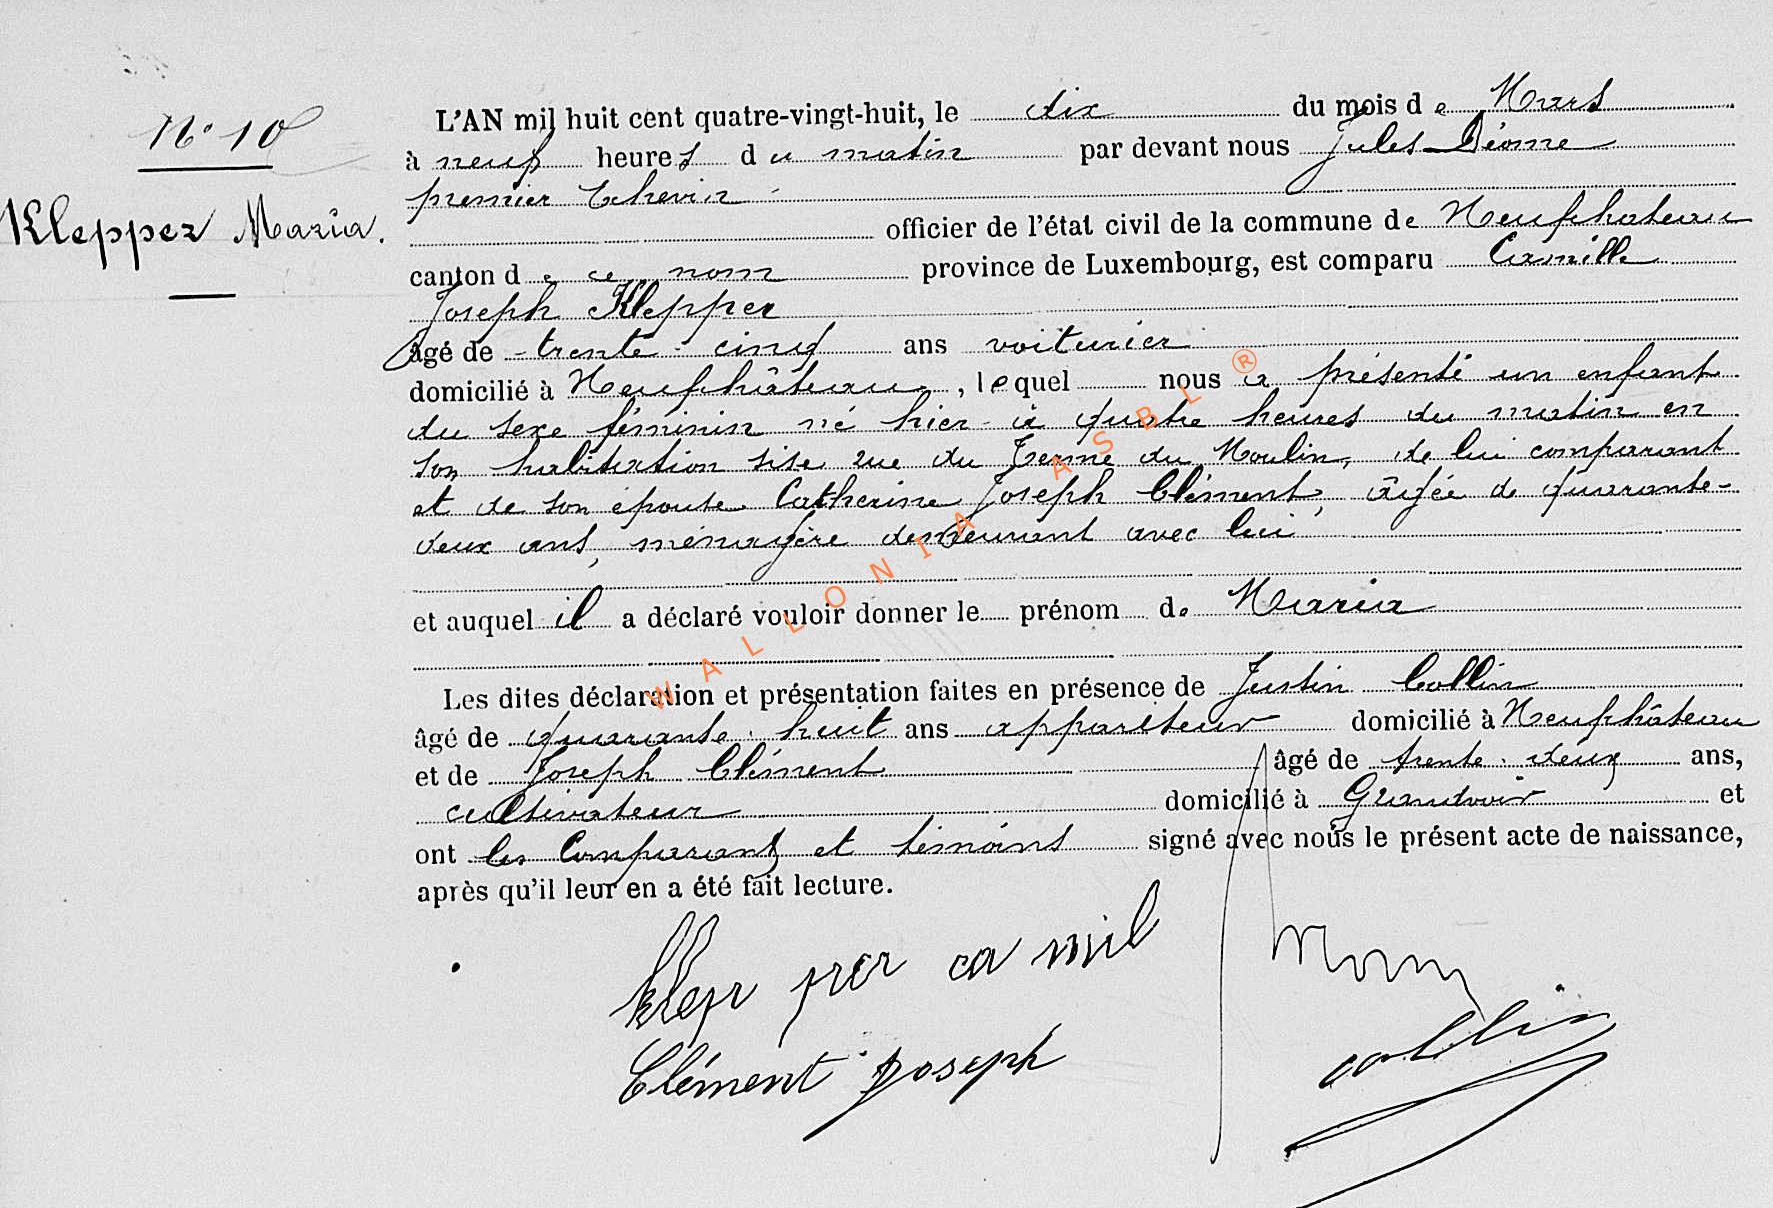 N° 10
Klepper Maria.
L'AN mil huit cent quatre-vingt-huit, le dix du mois de Mars
à neuf heures du matin par devant nous Jules Déome
premier Echevin
officier de l'état civil de la commune de Neufchateau
canton de ce nom province de Luxembourg, est comparu Camille
Joseph Klepper
âgé de trente-cinq ans voiturier
domicilié à Neufchâteau, lequel nous a présenté un enfant
du sexe féminin né hier à quatre heures du matin en
son habitation sise rue du Terme du Moulin, de lui comparant
et de son épouse Catherine Joseph Clément, âgée de quarante-
deux ans, ménagère demeurant avec lui
et auquel il a déclaré vouloir donner le prénom de Maria
Les dites déclaration et présentation faites en présence de Justin Collin
âgé de quarante-huit ans appariteur domicilié à Neufchâteau
et de Joseph Clément âgé de trente-deux ans,
cultivateur domicilié à Grandvoir et
ont les Comparant et témoins signé avec nous le présent acte de naissance,
après qu'il leur en a été fait lecture.
klep per ca mil
Clément Joseph
collin
WALLONIA ASBL ®